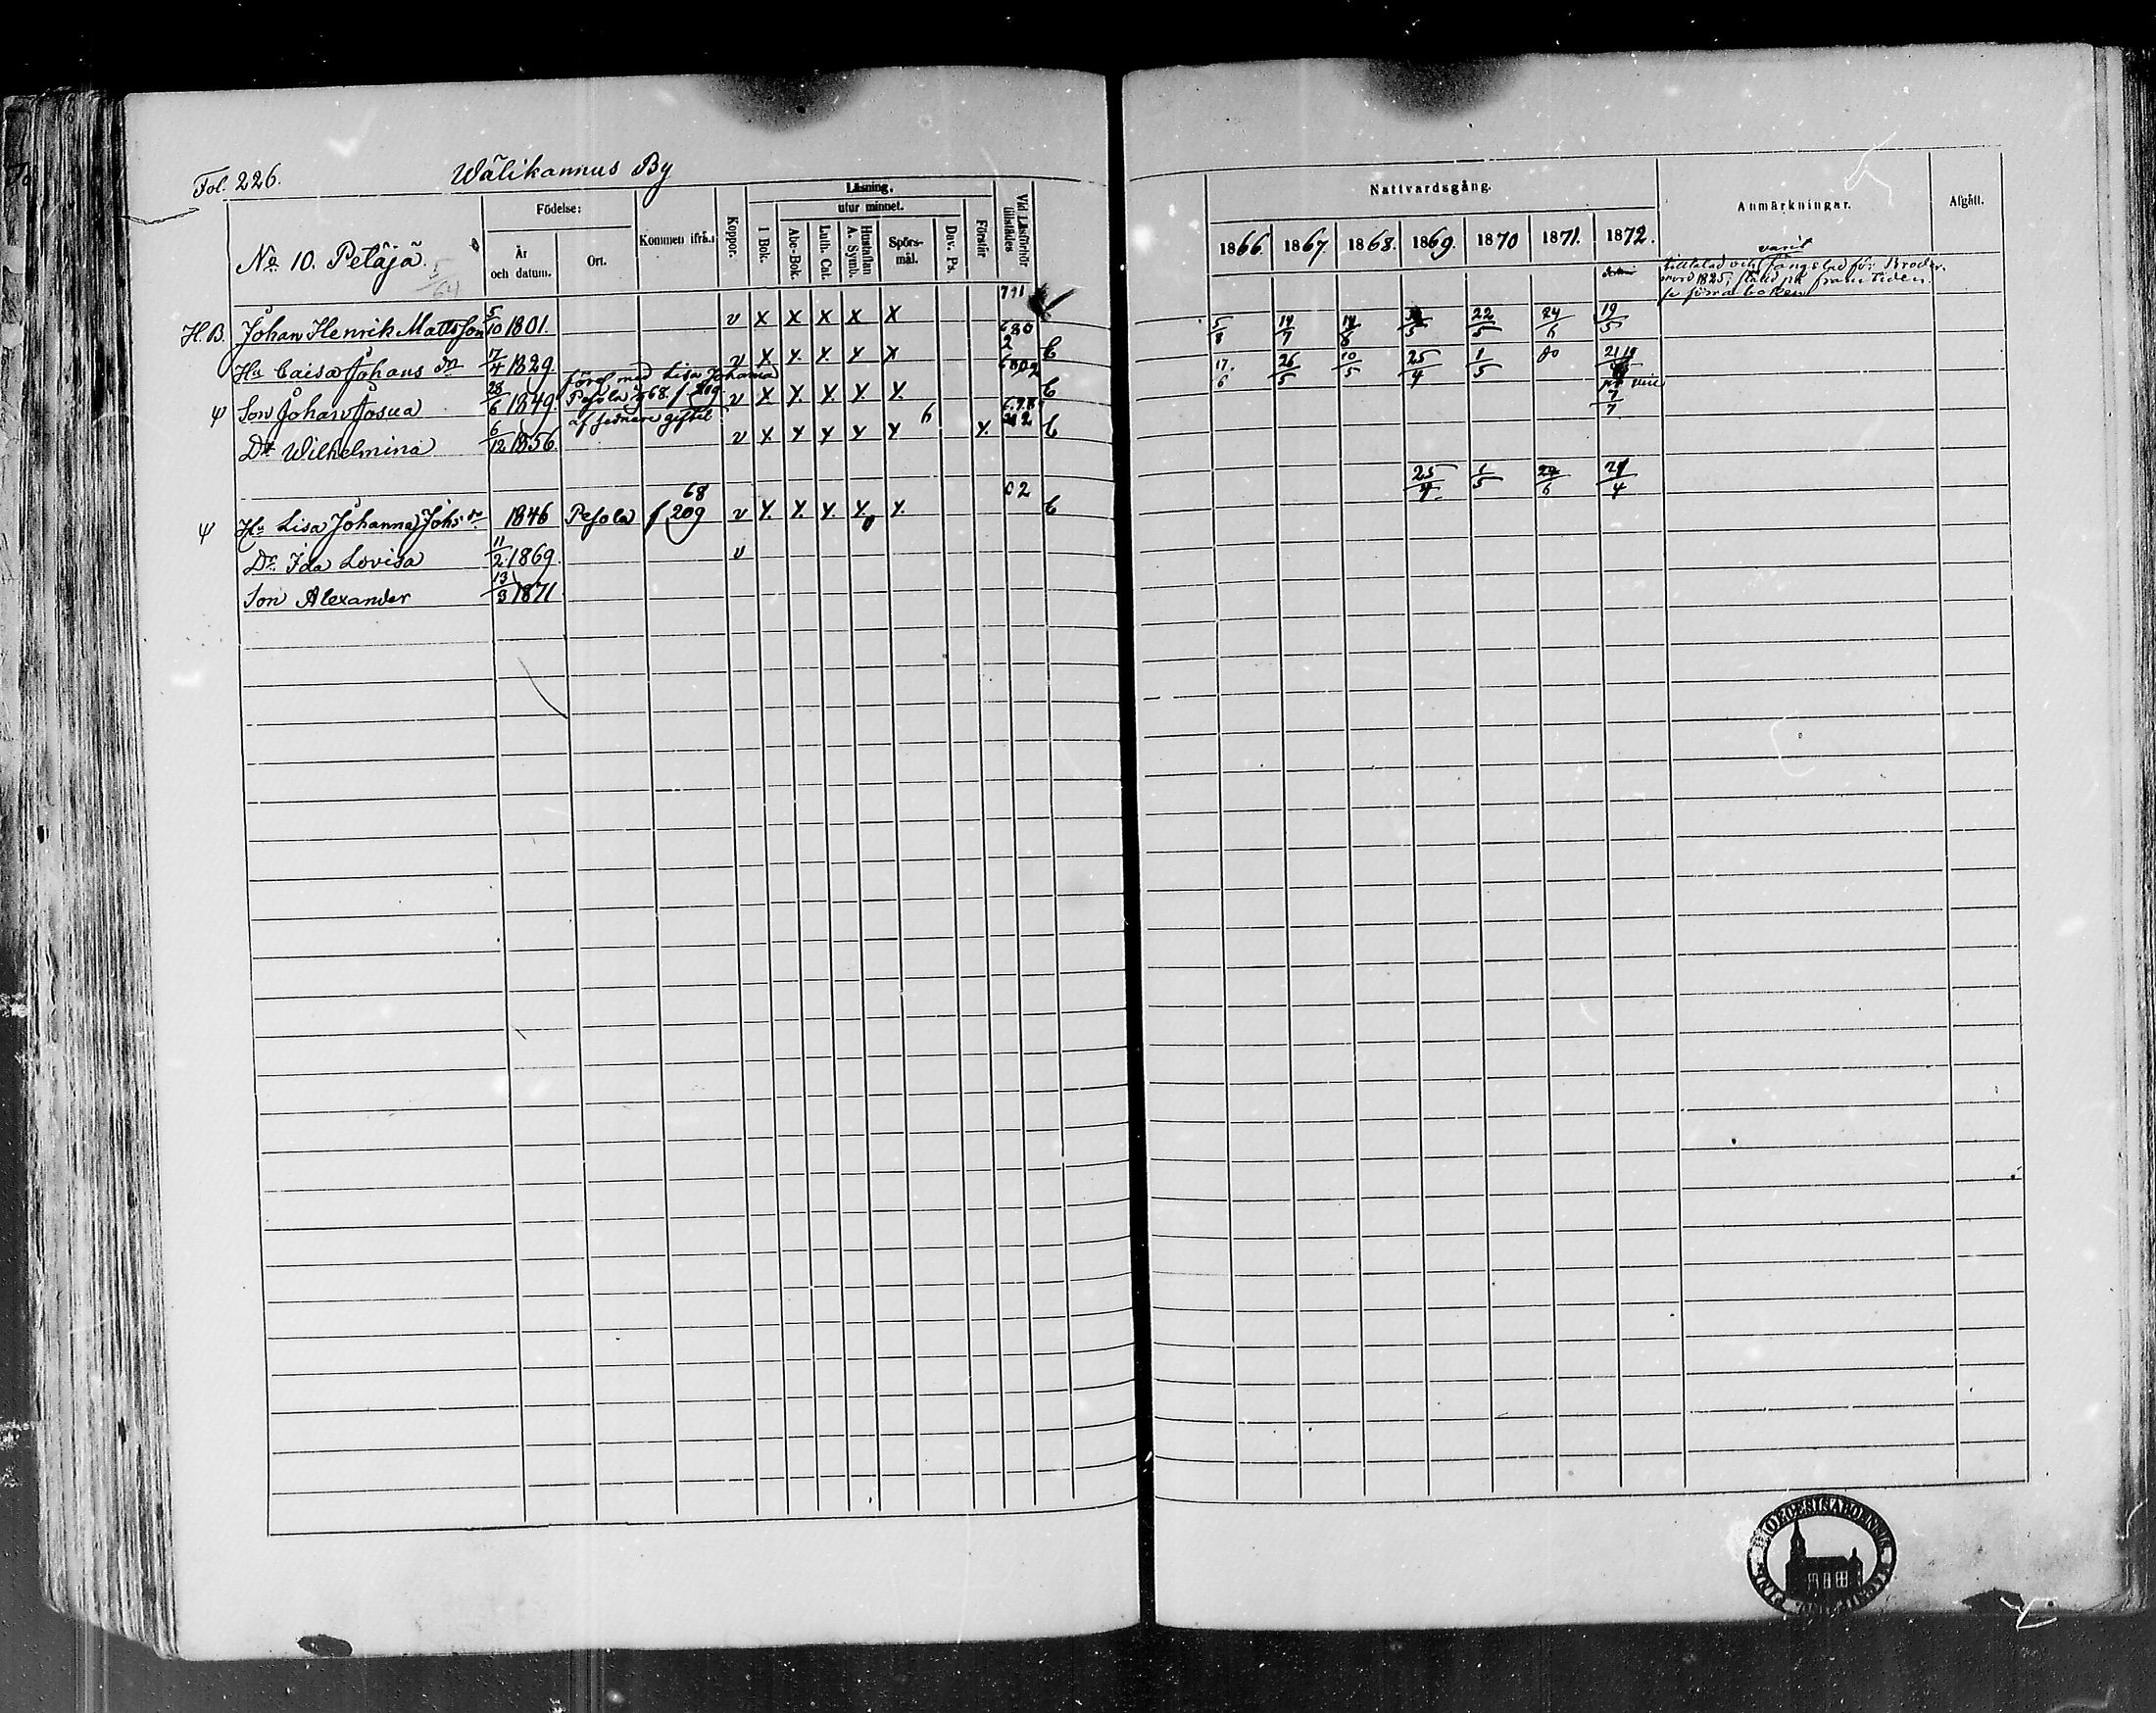 Fol. 226. Wälikannus By
Födelse: Läsning.
utur minnet.
No 10. Petäjä. 5/64 År och datum. Ort. Kommen ifrå.: Koppor. I Bok. Abc-Bok. Luth. Cat. Hustaflan A. Symb. Spörs-mål. Dav. Ps. Förstår Vid Läsförhör tillstädes
Nattvardsgång. Anmärkningar. Afgått.
1866. 1867. 1868. 1869. 1870 1871. 1872.
varit
tilltalad och fängslad för Broder-
mord 1825;
H.B. Johan Henrik Mattsson 5/10 1801. v x x x x x 5/8 14/7 22/5 24/6 19/5
Hu Caisa Johans dr 17/4 1829. v x x x x x 17/6 26/5 10/5 25/4 1/5 do
förel med Lisa Johanna
ψ Son Johan Josua 28/6 1849. Pesola 68. f 209 v x x x x x 7/7
af fednare giftet
Dr Wilhelmina 6/12 1856. v x x x x x 6 x
ψ Hu Lisa Johanna Johs dr 1846 Pesola 68 f 209 v x x x x x 02 25/4 1/5 24/6 21/4
Dr Ida Lovisa 11/2 1869. v
Son Alexander 13/3 1871